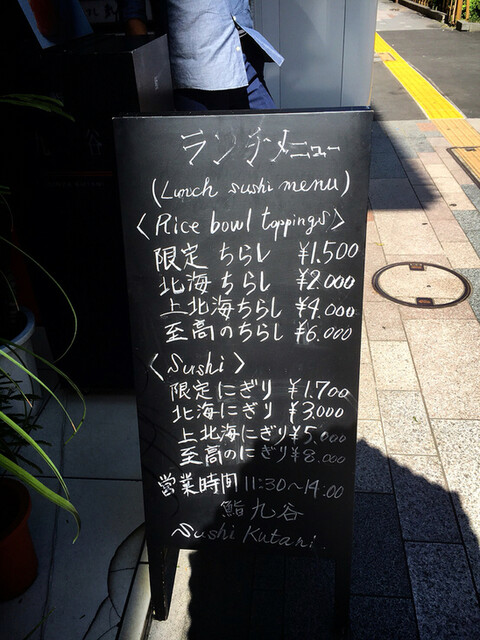 ランチメニュー
(Lunch sushi menu)
<Rice bowl toppings>
限定 ちらし ¥1.500
北海 ちらし ¥2.000
上北海ちらし ¥4.000
至高のちらし ¥6.000
<Sushi>
限定にぎり ¥1.700
北海にぎり ¥3.000
上北海にぎり ¥5.000
至高のにぎり ¥8.000
営業時間 11:30〜14:00
鮨 九谷
Sushi Kutani.